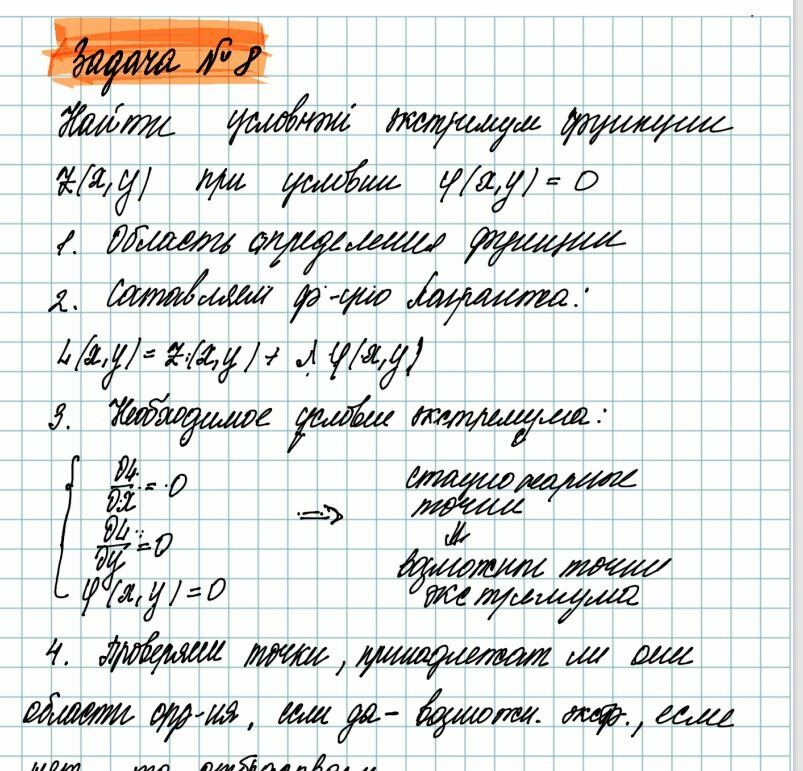 Задача № 8
Найти условный экстремум функции
Z(x,y) при условии φ(x,y) = 0
1. Область определения функции
2. Составляем ф-цию Лагранжа:
L(x,y) = Z(x,y) + λ φ(x,y)
3. Необходимое условие экстремума:
∂L/∂x = 0
∂L/∂y = 0
φ(x,y) = 0
⇒
стационарные
точки
⇓
возможны точки
экстремума
4. Проверяем точки, принадлежат ли они
области опр-ия, если да - возможн. экстр., если
нет, то отбрасываем